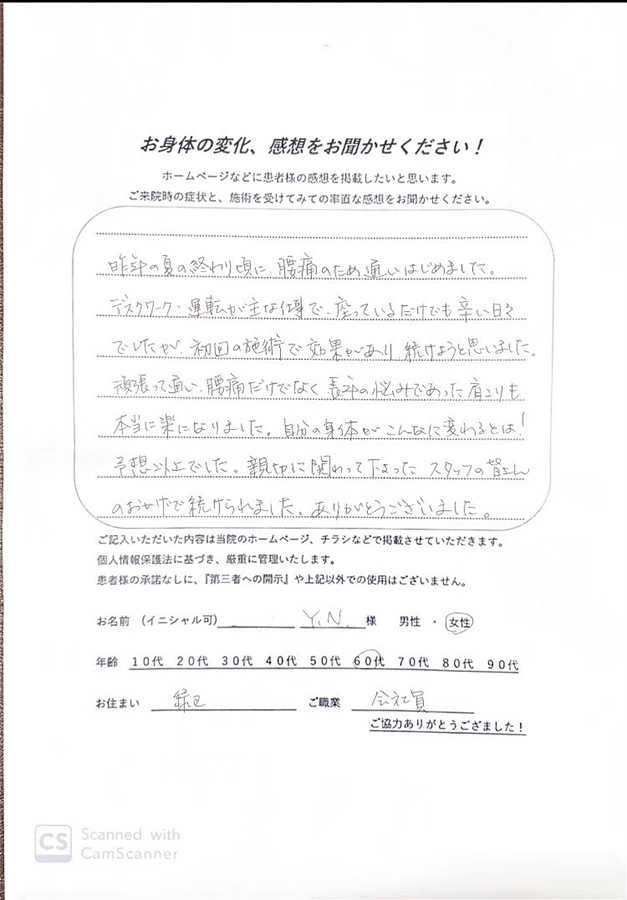 お身体の変化、感想をお聞かせください！
ホームページなどに患者様の感想を掲載したいと思います。
ご来院時の症状と、施術を受けてみての率直な感想をお聞かせください。
昨年の夏の終わり頃に、腰痛のため通いはじめました。
デスクワーク・運転が主な仕事で、座っているだけでも辛い日々
でしたが、初回の施術で効果があり、続けようと思いました。
頑張って通い、腰痛だけでなく長年の悩みであった肩こりも
本当に楽になりました。自分の身体がこんなに変わるとは！
予想以上でした。親切に関わって下さったスタッフの皆さん
のおかげで続けられました、ありがとうございました。
ご記入いただいた内容は当院のホームページ、チラシなどで掲載させていただきます。
個人情報保護法に基づき、厳重に管理いたします。
患者様の承諾なしに、『第三者への開示』や上記以外での使用はございません。
お名前 (イニシャル可) Y.N. 様 男性 ・ 女性
年齢 10代 20代 30代 40代 50代 60代 70代 80代 90代
お住まい ご職業 会社員
ご協力ありがとうござました！
CS Scanned with
CamScanner